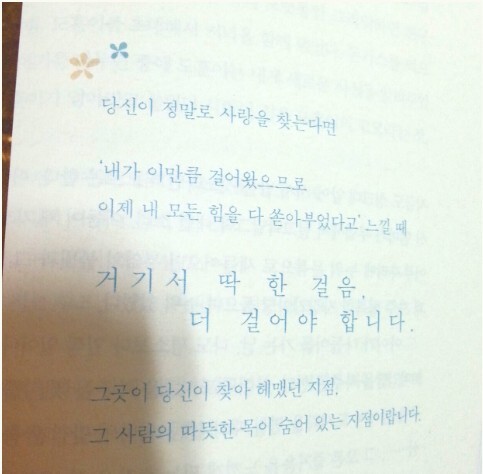 당신이 정말로 사랑을 찾는다면
'내가 이만큼 걸어왔으므로
이제 내 모든 힘을 다 쏟아부었다고' 느낄 때
거기서 딱 한 걸음
더 걸어야 합니다.
그곳이 당신이 찾아 헤맸던 지점,
그 사람의 따뜻한 목이 숨어 있는 지점이랍니다.